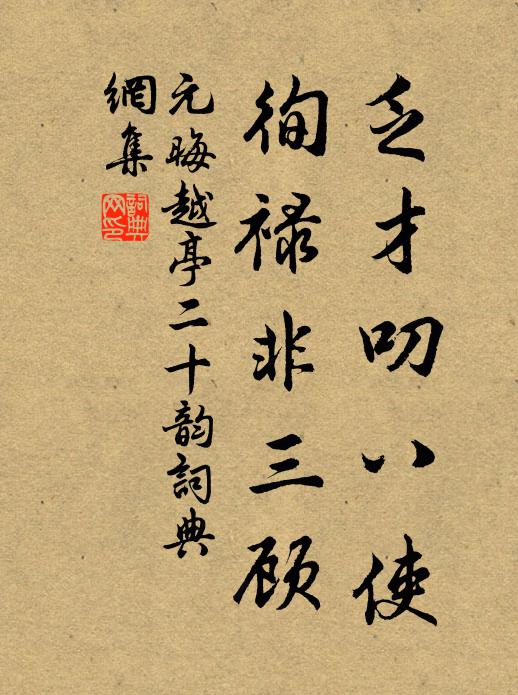 乏才叨八使
徇禄非三顾
元晦越亭二十韵詞典
網集
詞典网印